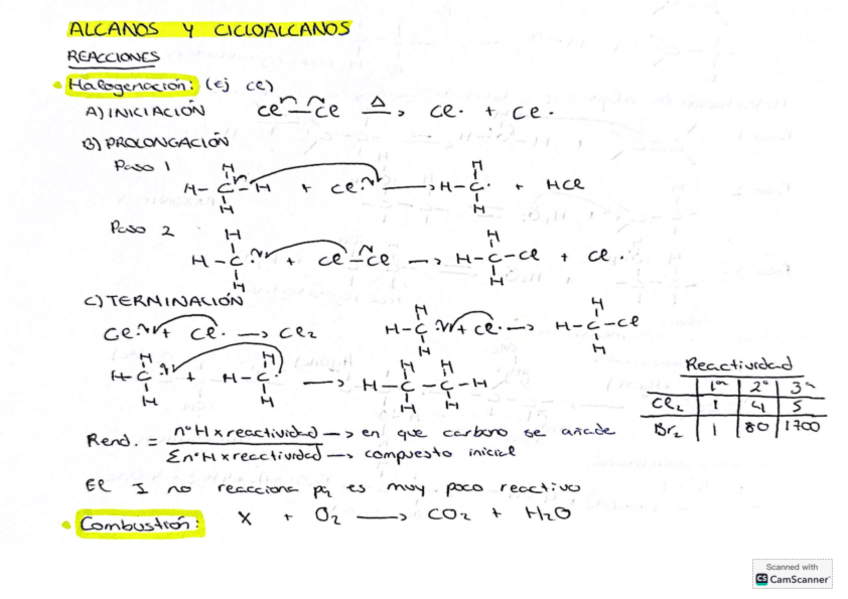 ALCANOS Y CICLOALCANOS
REACCIONES
• Halogenación: (ej Cl)
A) INICIACIÓN Cl–Cl Δ→ Cl· + Cl·
B) PROLONGACIÓN
Paso 1
H
H–C–H + Cl· → H–C· + HCl
H
Paso 2
H
H–C· + Cl–Cl → H–C–Cl + Cl·
H
C) TERMINACIÓN
Cl· + Cl· → Cl2 H–C· + Cl· → H–C–Cl
H–C· + H–C· → H–C–C–H
Reactividad
1º 2º 3º
Cl2 1 4 5
Br2 1 80 1700
Rend. = nºH x reactividad → en que carbono se añade
ΣnºH x reactividad → compuesto inicial
El I no reacciona pq es muy poco reactivo
• Combustión: X + O2 → CO2 + H2O
Scanned with
CS CamScanner